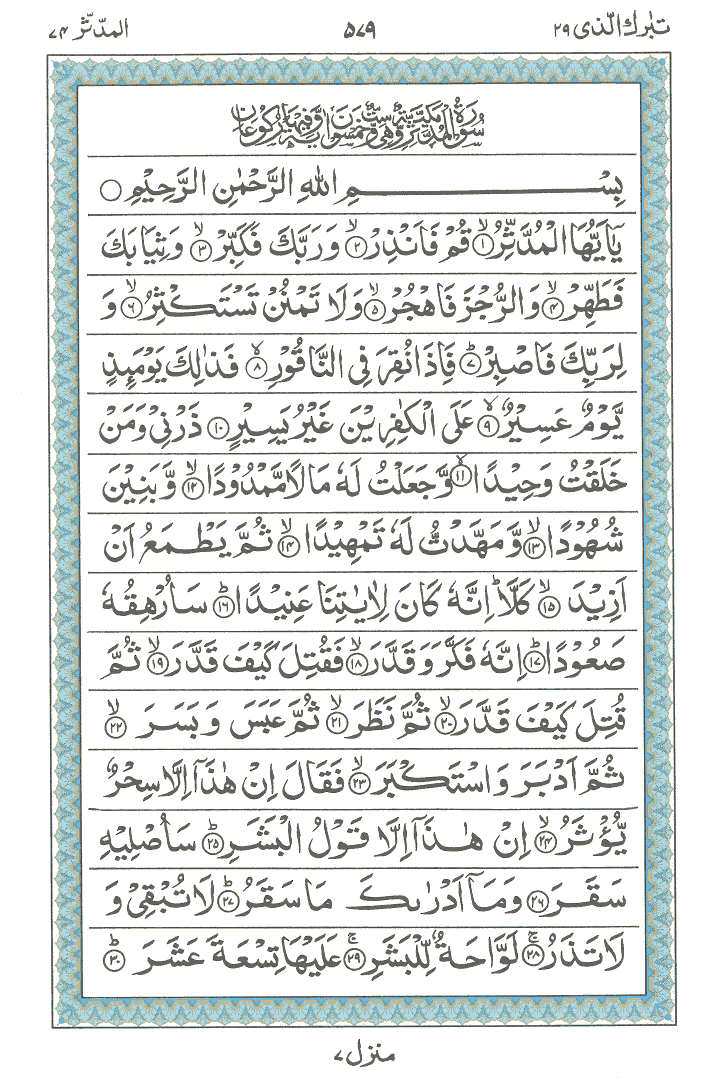 تبٰرك الّذی ٢٩ ۵٧٩ المدّثّر ٧۴
سُوْرَةُ الْمُدَّثِّرِ مَكِّيَّةٌ وَّهِيَ سِتٌّ وَّخَمْسُوْنَ اٰيَةً وَّفِيْهَا رُكُوْعَانِ
بِسْــــــــــــمِ اللهِ الرَّحْمٰنِ الرَّحِيْمِ ○
يٰۤاَيُّهَا الْمُدَّثِّرُ ۙ﴿١﴾ قُمْ فَاَنْذِرْ ۙ﴿٢﴾ وَرَبَّكَ فَكَبِّرْ ۙ﴿٣﴾ وَثِيَابَكَ
فَطَهِّرْ ۙ﴿۴﴾ وَالرُّجْزَ فَاهْجُرْ ۙ﴿۵﴾ وَلَا تَمْنُنْ تَسْتَكْثِرُ ۙ﴿۶﴾ وَ
لِرَبِّكَ فَاصْبِرْ ؕ﴿٧﴾ فَاِذَا نُقِرَ فِى النَّاقُوْرِ ۙ﴿٨﴾ فَذٰلِكَ يَوْمَئِذٍ
يَّوْمٌ عَسِيْرٌ ۙ﴿٩﴾ عَلَى الْكٰفِرِيْنَ غَيْرُ يَسِيْرٍ ﴿١٠﴾ ذَرْنِىْ وَمَنْ
خَلَقْتُ وَحِيْدًا ۙ﴿١١﴾ وَّجَعَلْتُ لَهٗ مَالًا مَّمْدُوْدًا ۙ﴿١٢﴾ وَّبَنِيْنَ
شُهُوْدًا ۙ﴿١٣﴾ وَّمَهَّدْتُّ لَهٗ تَمْهِيْدًا ۙ﴿١۴﴾ ثُمَّ يَطْمَعُ اَنْ
اَزِيْدَ ۙ﴿١۵﴾ كَلَّا ؕ اِنَّهٗ كَانَ لِاٰيٰتِنَا عَنِيْدًا ؕ﴿١۶﴾ سَاُرْهِقُهٗ
صَعُوْدًا ؕ﴿١٧﴾ اِنَّهٗ فَكَّرَ وَقَدَّرَ ۙ﴿١٨﴾ فَقُتِلَ كَيْفَ قَدَّرَ ۙ﴿١٩﴾ ثُمَّ
قُتِلَ كَيْفَ قَدَّرَ ۙ﴿٢٠﴾ ثُمَّ نَظَرَ ۙ﴿٢١﴾ ثُمَّ عَبَسَ وَبَسَرَ ۙ﴿٢٢﴾
ثُمَّ اَدْبَرَ وَاسْتَكْبَرَ ۙ﴿٢٣﴾ فَقَالَ اِنْ هٰذَاۤ اِلَّا سِحْرٌ
يُّؤْثَرُ ۙ﴿٢۴﴾ اِنْ هٰذَاۤ اِلَّا قَوْلُ الْبَشَرِ ؕ﴿٢۵﴾ سَاُصْلِيْهِ
سَقَرَ ﴿٢۶﴾ وَمَاۤ اَدْرٰىكَ مَا سَقَرُ ؕ﴿٢٧﴾ لَا تُبْقِىْ وَ
لَا تَذَرُ ۚ﴿٢٨﴾ لَوَّاحَةٌ لِّلْبَشَرِ ۚ﴿٢٩﴾ عَلَيْهَا تِسْعَةَ عَشَرَ ؕ﴿٣٠﴾
منزل ٧